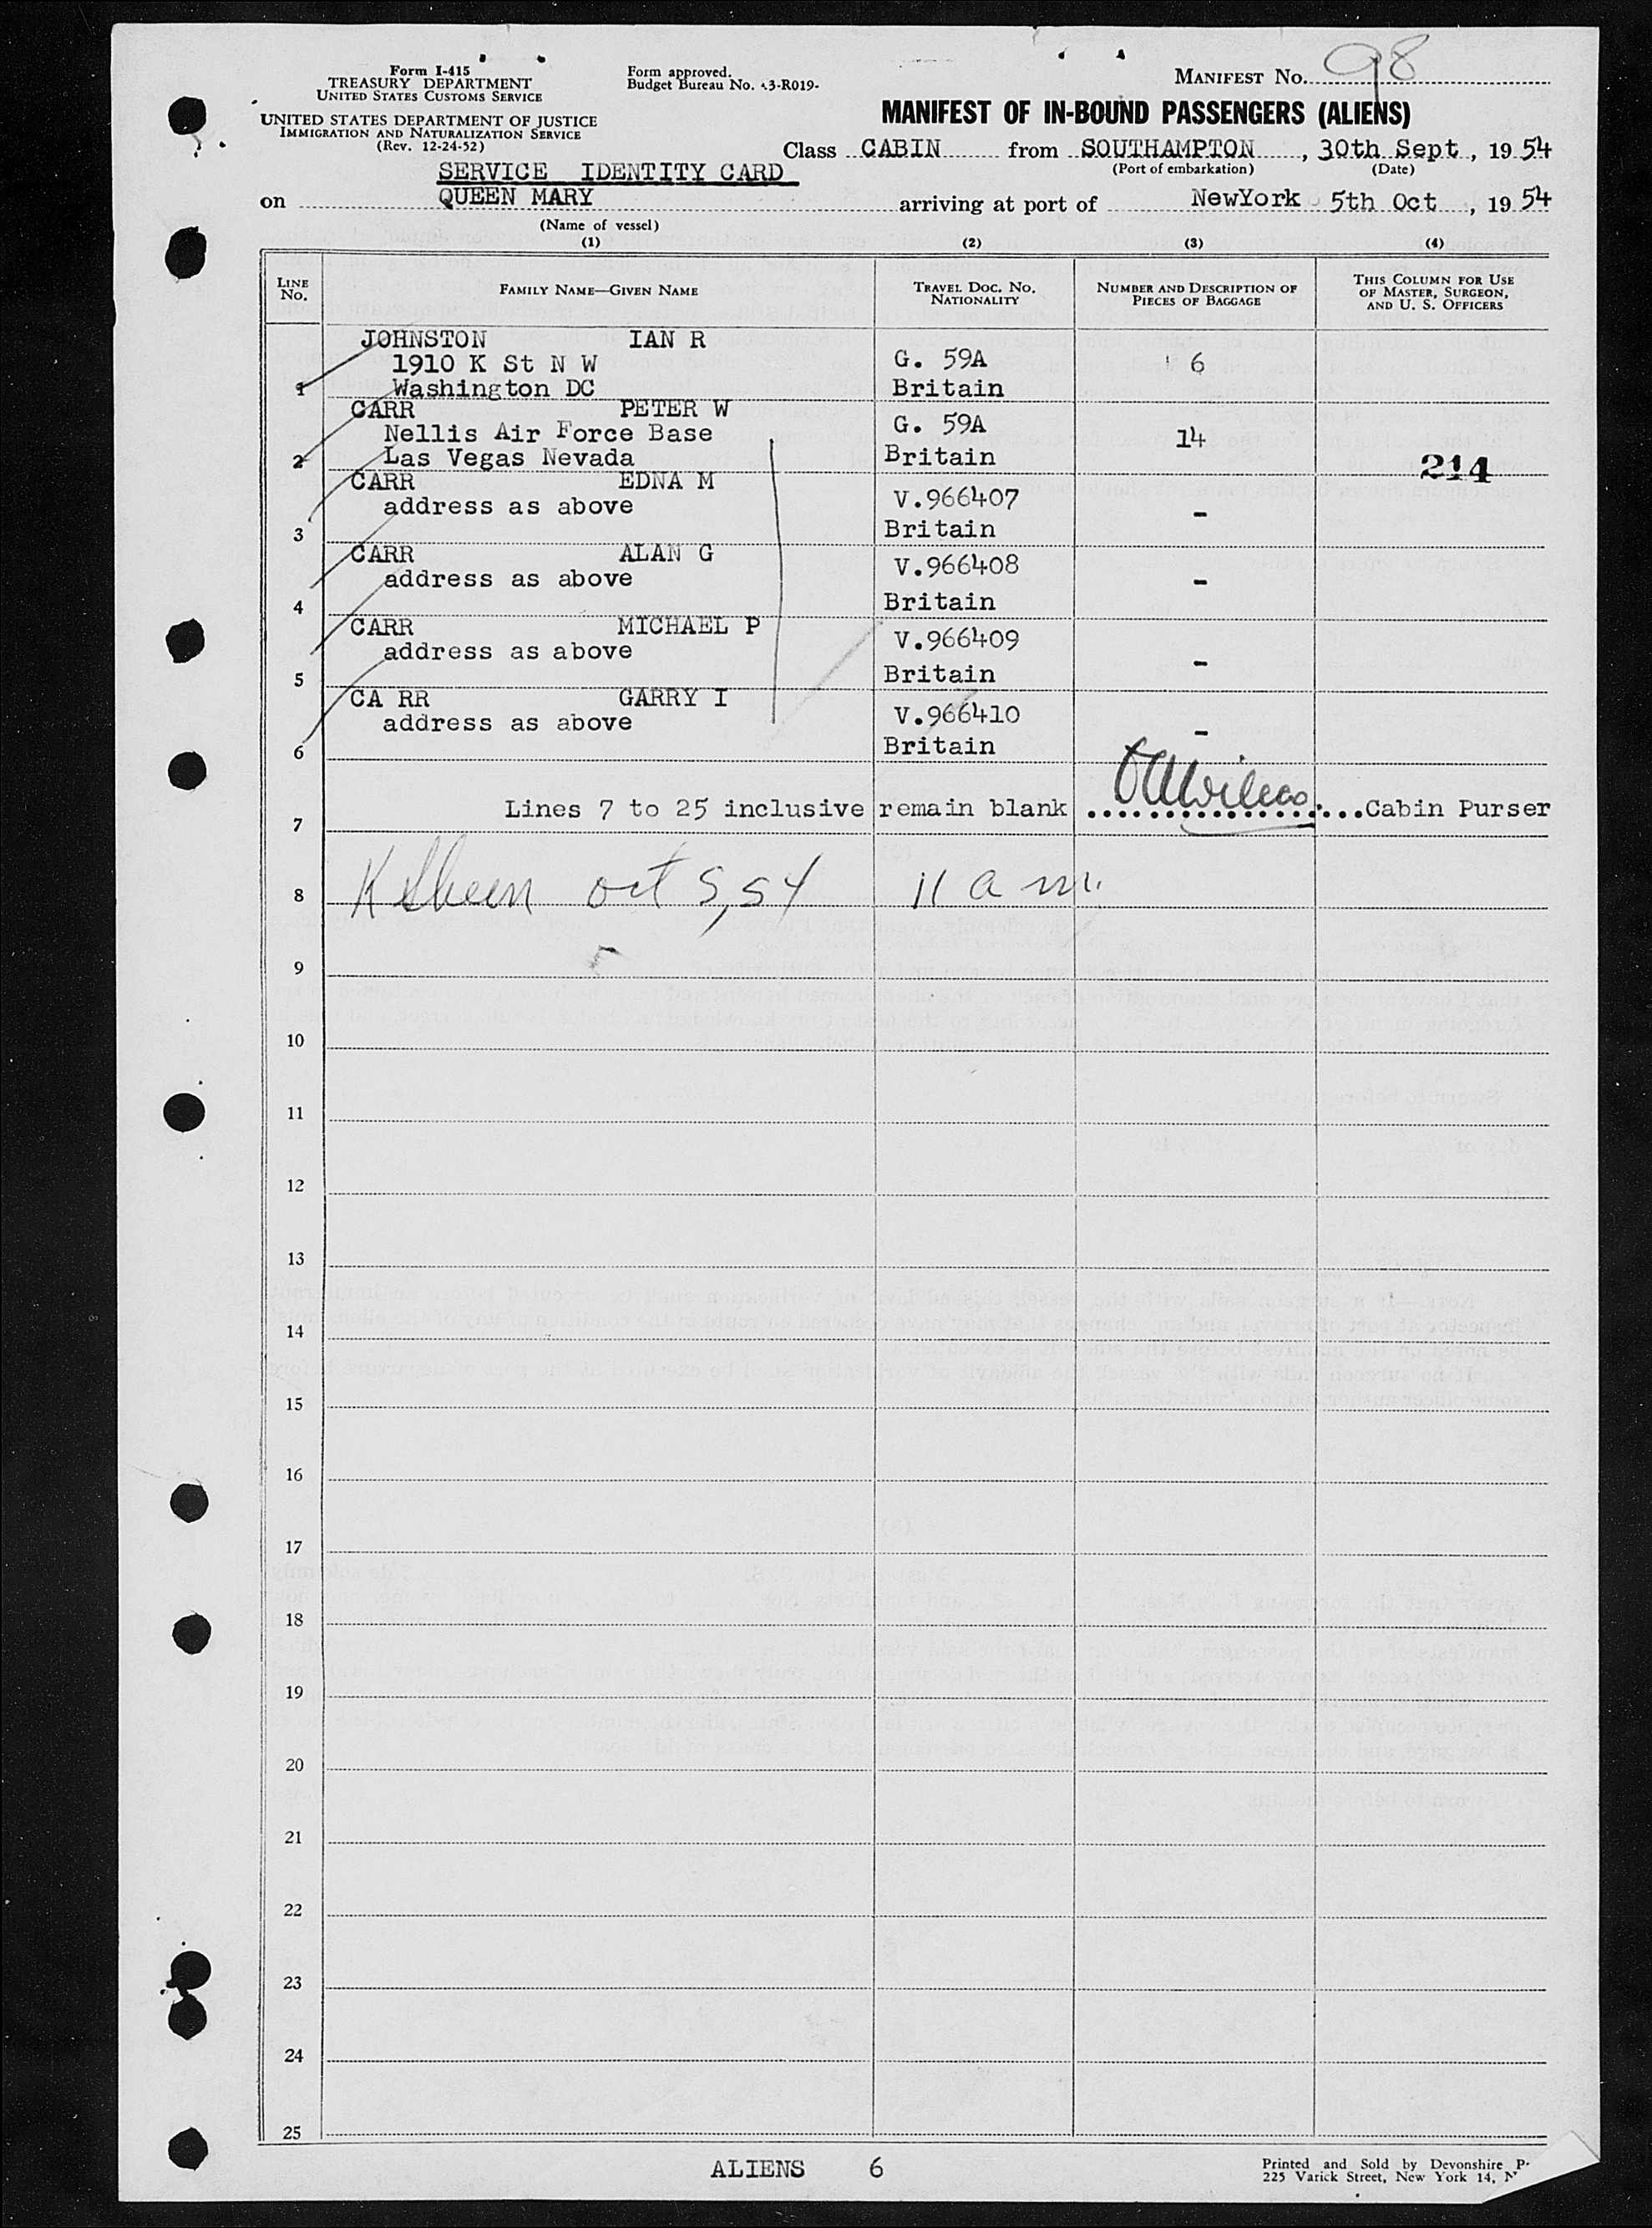 Form I-415
TREASURY DEPARTMENT
UNITED STATES CUSTOMS SERVICE
UNITED STATES DEPARTMENT OF JUSTICE
IMMIGRATION AND NATURALIZATION SERVICE
(Rev. 12-24-52)
Form approved.
Budget Bureau No. 43-R019-
MANIFEST No. 98
MANIFEST OF IN-BOUND PASSENGERS (ALIENS)
Class CABIN from SOUTHAMPTON, 30th Sept, 1954
(Port of embarkation) (Date)
SERVICE IDENTITY CARD
on QUEEN MARY arriving at port of NewYork 5th Oct, 1954
(Name of vessel)
(1) (2) (3) (4)
LINE No. FAMILY NAME—GIVEN NAME TRAVEL DOC. NO. NATIONALITY NUMBER AND DESCRIPTION OF PIECES OF BAGGAGE THIS COLUMN FOR USE OF MASTER, SURGEON, AND U. S. OFFICERS
JOHNSTON IAN R
1910 K St N W G. 59A 6
1 Washington DC Britain
CARR PETER W
Nellis Air Force Base G. 59A 14
2 Las Vegas Nevada Britain 214
CARR EDNA M
address as above V.966407 -
3 Britain
CARR ALAN G
address as above V.966408 -
4 Britain
CARR MICHAEL P
address as above V.966409 -
5 Britain
CA RR GARRY I
address as above V.966410 -
6 Britain
7 Lines 7 to 25 inclusive remain blank ....Cabin Purser
8 K Sheen Oct 5, 54 11 a m.
9
10
11
12
13
14
15
16
17
18
19
20
21
22
23
24
25
ALIENS 6
Printed and Sold by Devonshire
225 Varick Street, New York 14,